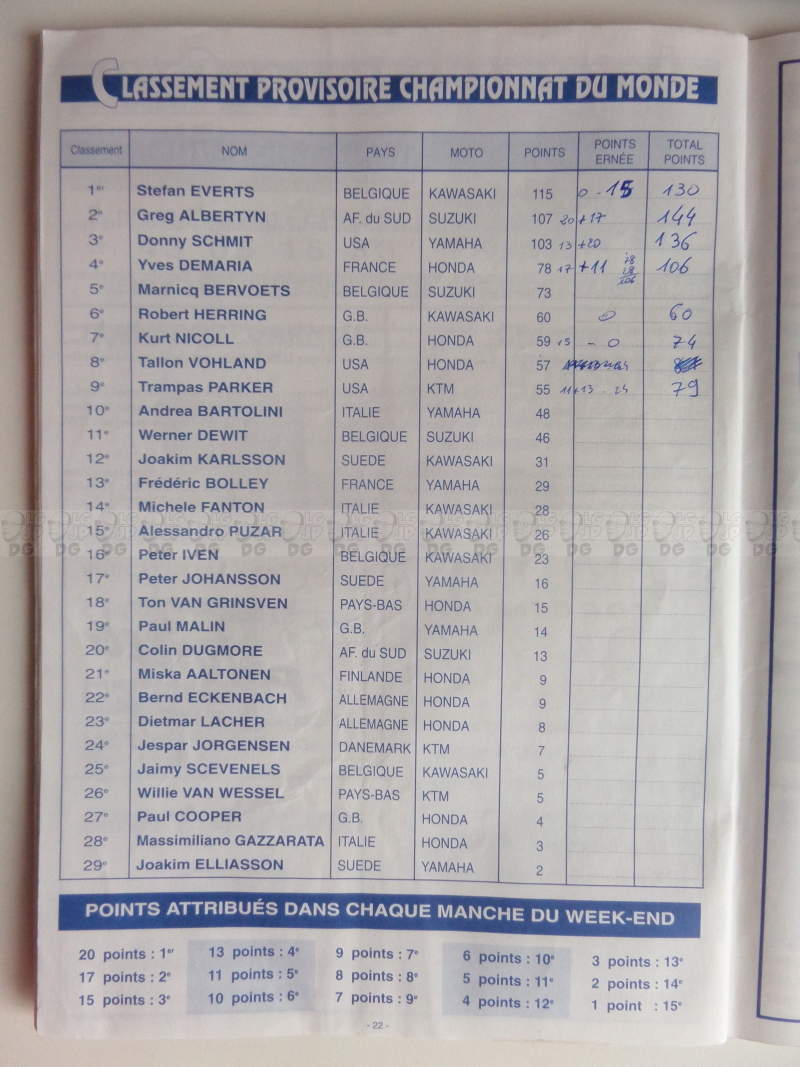 CLASSEMENT PROVISOIRE CHAMPIONNAT DU MONDE
Classement NOM PAYS MOTO POINTS POINTS ERNÉE TOTAL POINTS
1er Stefan EVERTS BELGIQUE KAWASAKI 115 0 - 15 130
2e Greg ALBERTYN AF. du SUD SUZUKI 107 20 +17 144
3e Donny SCHMIT USA YAMAHA 103 13 +20 136
4e Yves DEMARIA FRANCE HONDA 78 17 +11 78 28 106 106
5e Marnicq BERVOETS BELGIQUE SUZUKI 73
6e Robert HERRING G.B. KAWASAKI 60 0 60
7e Kurt NICOLL G.B. HONDA 59 15 - 0 74
8e Tallon VOHLAND USA HONDA 57
9e Trampas PARKER USA KTM 55 11+13 - 24 79
10e Andrea BARTOLINI ITALIE YAMAHA 48
11e Werner DEWIT BELGIQUE SUZUKI 46
12e Joakim KARLSSON SUEDE KAWASAKI 31
13e Frédéric BOLLEY FRANCE YAMAHA 29
14e Michele FANTON ITALIE KAWASAKI 28
15e Alessandro PUZAR ITALIE KAWASAKI 26
16e Peter IVEN BELGIQUE KAWASAKI 23
17e Peter JOHANSSON SUEDE YAMAHA 16
18e Ton VAN GRINSVEN PAYS-BAS HONDA 15
19e Paul MALIN G.B. YAMAHA 14
20e Colin DUGMORE AF. du SUD SUZUKI 13
21e Miska AALTONEN FINLANDE HONDA 9
22e Bernd ECKENBACH ALLEMAGNE HONDA 9
23e Dietmar LACHER ALLEMAGNE HONDA 8
24e Jespar JORGENSEN DANEMARK KTM 7
25e Jaimy SCEVENELS BELGIQUE KAWASAKI 5
26e Willie VAN WESSEL PAYS-BAS KTM 5
27e Paul COOPER G.B. HONDA 4
28e Massimiliano GAZZARATA ITALIE HONDA 3
29e Joakim ELLIASSON SUEDE YAMAHA 2
POINTS ATTRIBUÉS DANS CHAQUE MANCHE DU WEEK-END
20 points : 1er 13 points : 4e 9 points : 7e 6 points : 10e 3 points : 13e
17 points : 2e 11 points : 5e 8 points : 8e 5 points : 11e 2 points : 14e
15 points : 3e 10 points : 6e 7 points : 9e 4 points : 12e 1 point : 15e
- 22 -